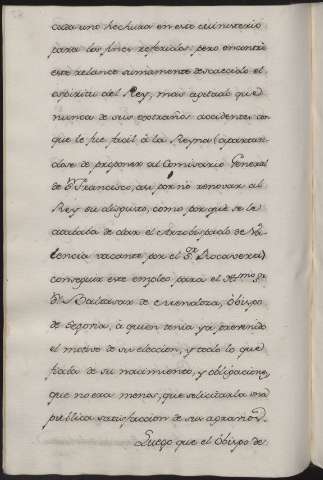 cada uno hechura en este ministerio
para los fines referidos: pero en
este relance sumamente descaecido el
espiritu del Rey, mas agitado que
nunca de sus extraños accidentes con
que le fue facil à la Reyna (apartan
dose de proponer al Comisario General
de Sn. Francisco, asi por nò renovar al
Rey su disgusto, como por què se le
acababa de dàr el Arzobispado de Va
lencia vacante por el Sr. Rocaverti)
conseguir este empleo para el Illmo. Sr.
Dn. Baltasar de Mendoza, Obispo
de Segovia, à quien tenia yà prevenido
el motivo de su eleccion, y todo lo que
fiaba de su nacimiento, y obligaciones
que no era menos, que solicitarla una
publica satisfaccion de sus agravios.
Luego que el Obispo de